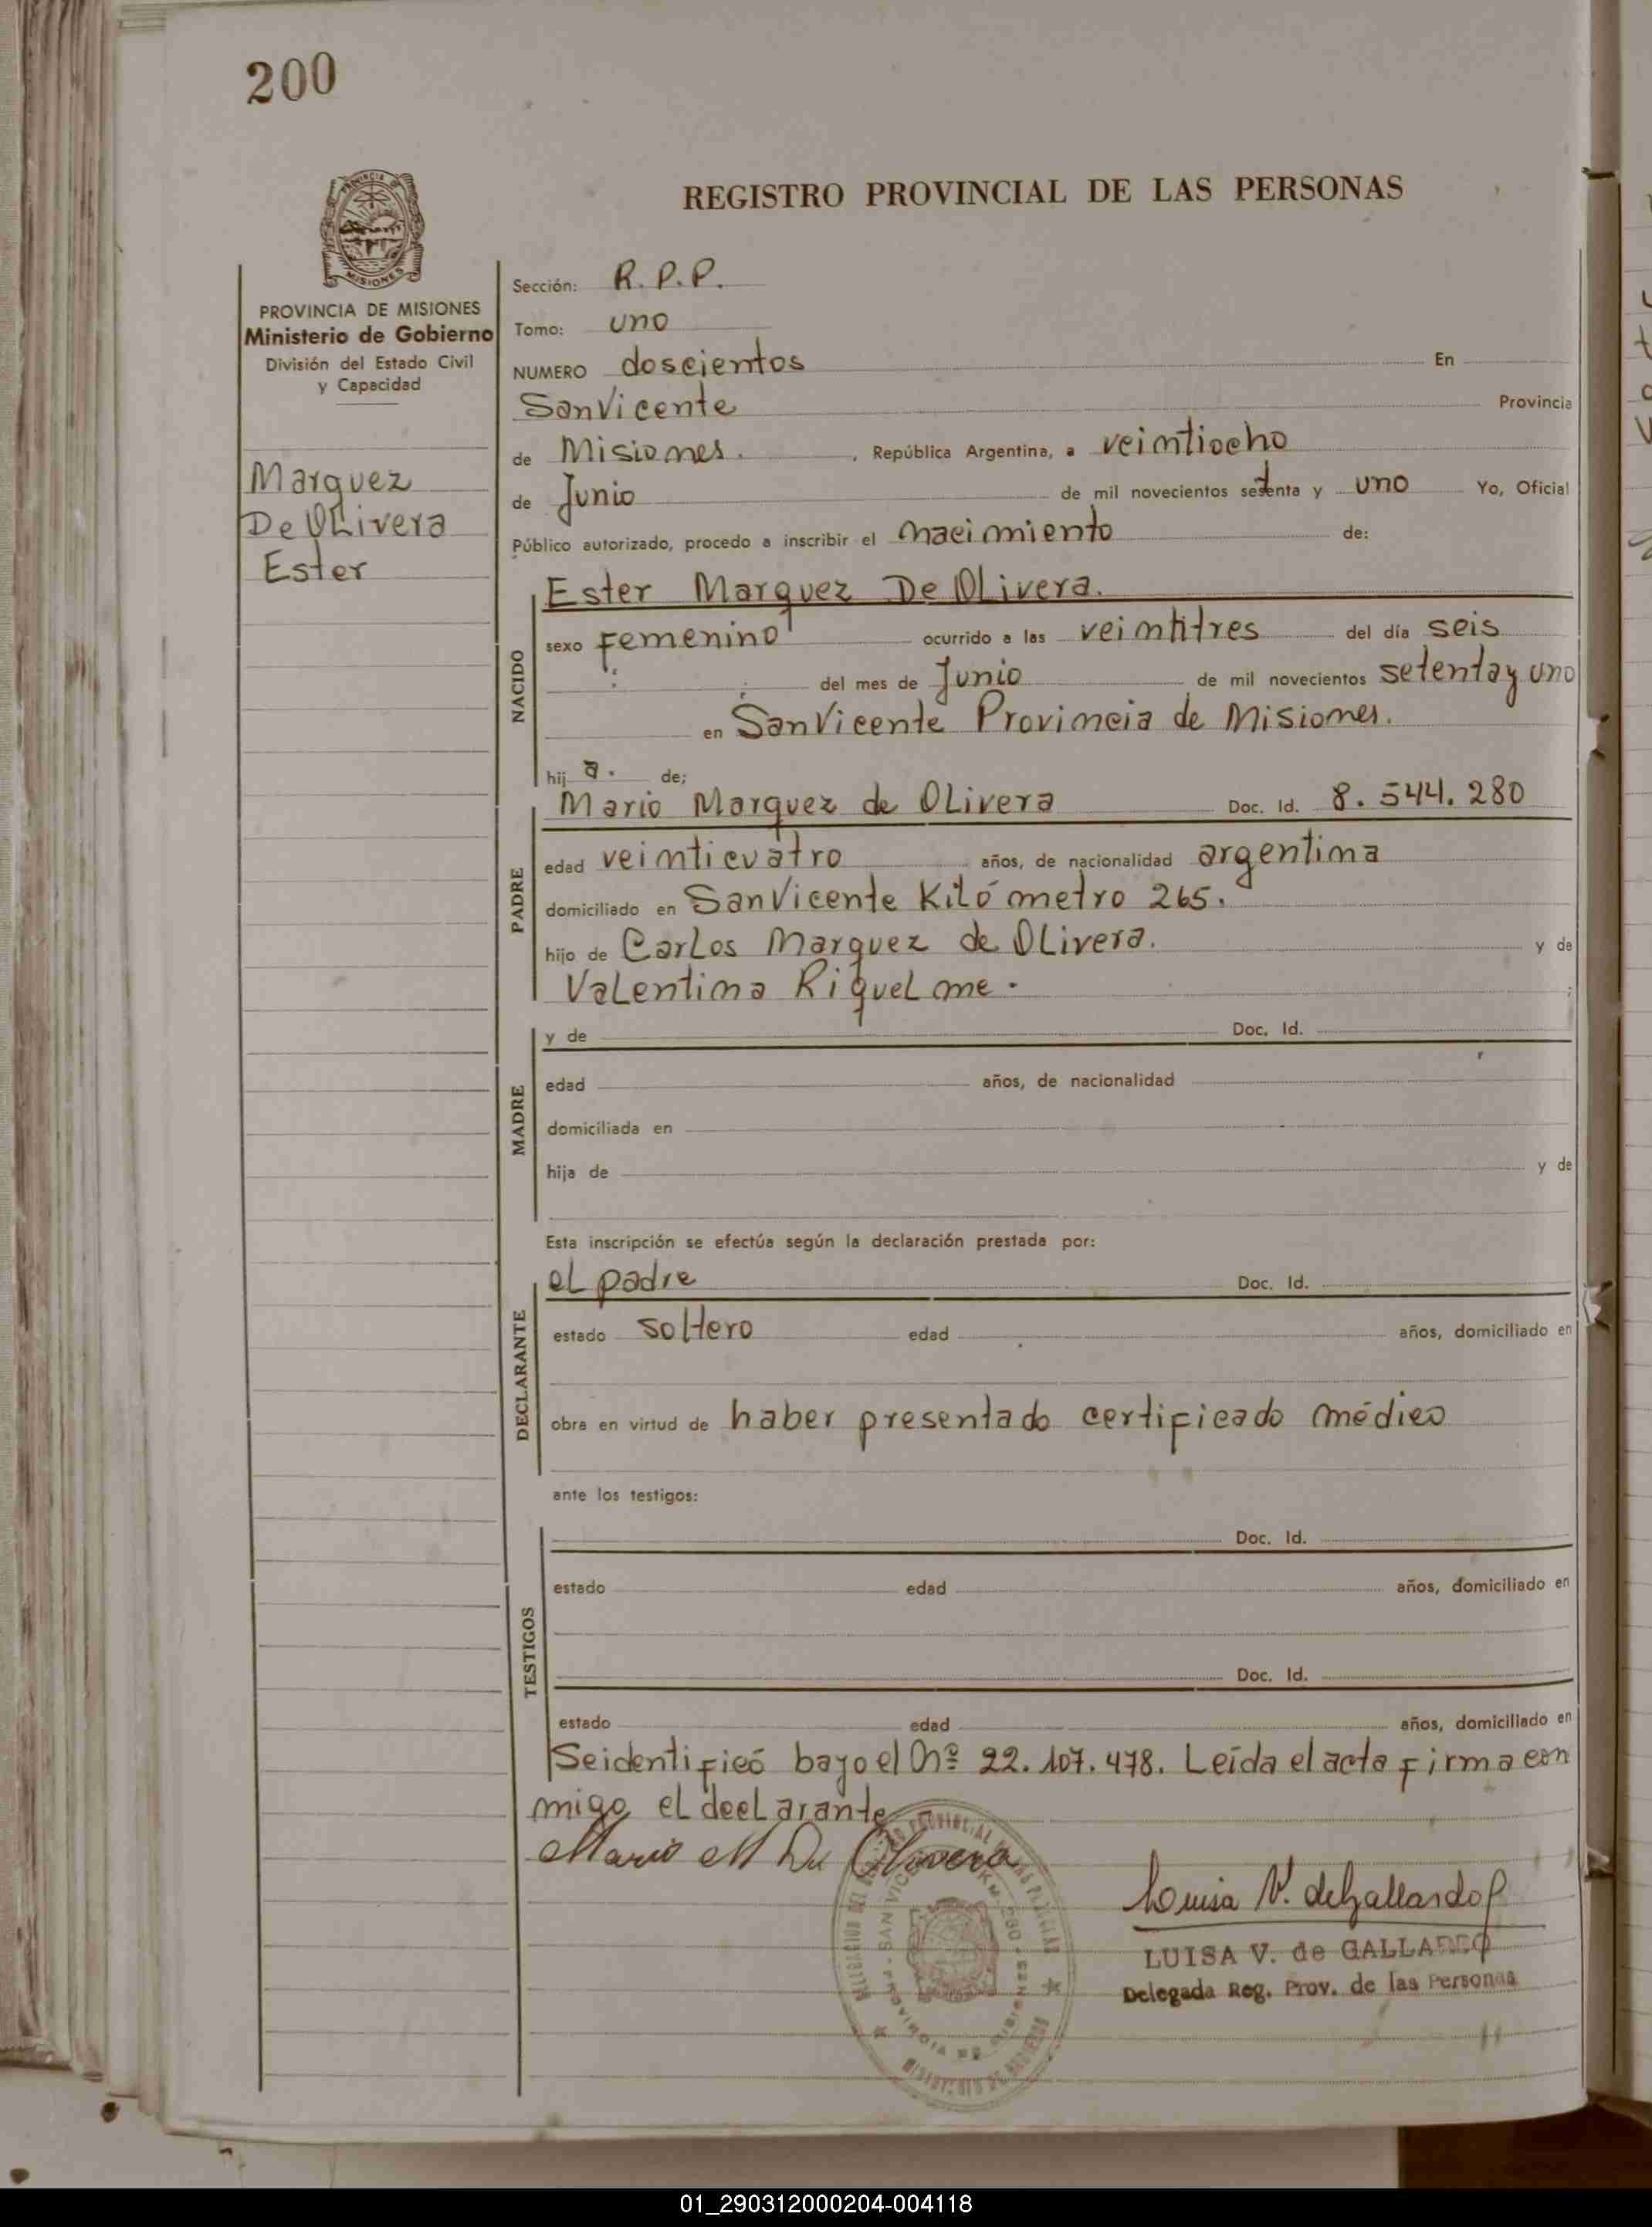 200
REGISTRO PROVINCIAL DE LAS PERSONAS
PROVINCIA DE MISIONES
Ministerio de Gobierno
División del Estado Civil
y Capacidad
Marquez
De OLivera
Ester
Sección: R.P.P.
Tomo: uno
NUMERO doscientos En
San Vicente Provincia
de Misiones. , República Argentina, a veintiocho
de Junio de mil novecientos setenta y uno Yo, Oficial
Público autorizado, procedo a inscribir el nacimiento de:
NACIDO
Ester Marquez De OLivera.
sexo Femenino ocurrido a las veintitres del día seis
del mes de Junio de mil novecientos setenta y uno
en San Vicente Provincia de Misiones.
hij a. de;
PADRE
Mario Marquez de OLivera Doc. Id. 8.544.280
edad veinticuatro años, de nacionalidad argentina
domiciliado en San Vicente Kilómetro 265.
hijo de Carlos Marquez de OLivera. y de
Valentina Riquelme.
MADRE
y de Doc. Id.
edad años, de nacionalidad
domiciliada en
hija de y de
Esta inscripción se efectúa según la declaración prestada por:
DECLARANTE
el padre Doc. Id.
estado soltero edad años, domiciliado en
obra en virtud de haber presentado certificado médico
ante los testigos:
TESTIGOS
Doc. Id.
estado edad años, domiciliado en
Doc. Id.
estado edad años, domiciliado en
Se identificó bajo el Nº 22.107.478. Leída el acta firma con
migo el declarante
Mario M De Olivera
Luisa V. de Gallardo
LUISA V. de GALLARDO
Delegada Reg. Prov. de las Personas
01_290312000204-004118